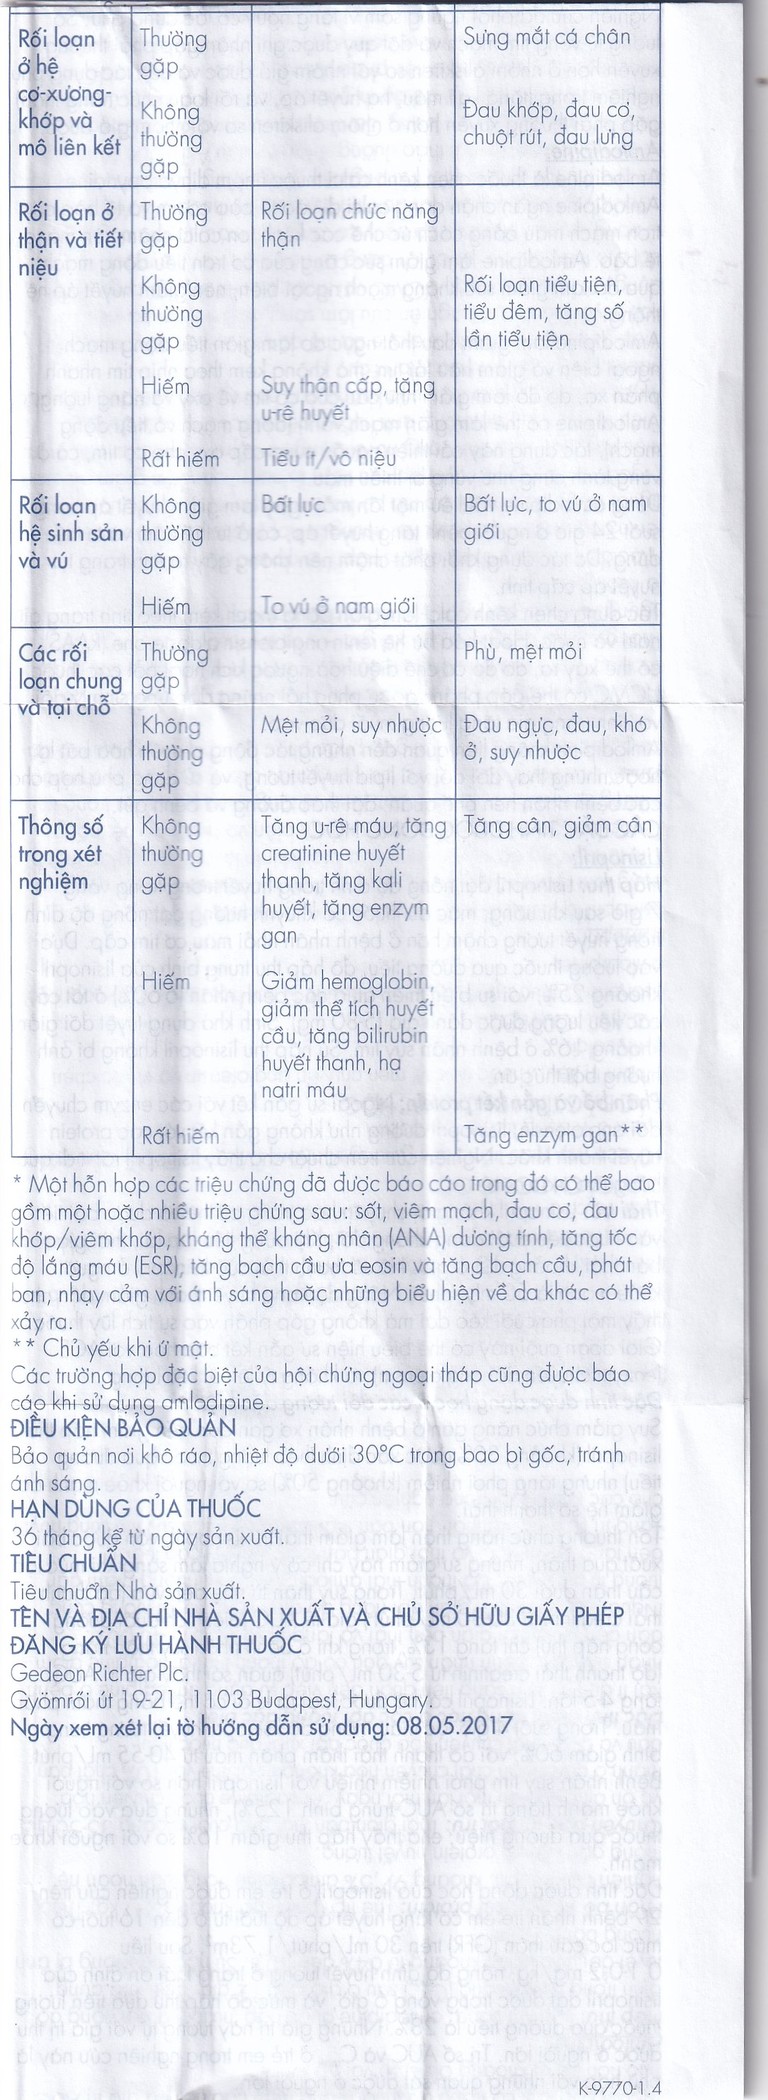 Rối loạn Thường Sưng mắt cá chân
ở hệ gặp
cơ-xương-
khớp và Không Đau khớp, đau cơ,
mô liên kết thường chuột rút, đau lưng
gặp
Rối loạn ở Thường Rối loạn chức năng
thận và tiết gặp thận
niệu
Không Rối loạn tiểu tiện,
thường tiểu đêm, tăng số
gặp lần tiểu tiện
Hiếm Suy thận cấp, tăng
u-rê huyết
Rất hiếm Tiểu ít/vô niệu
Rối loạn Không Bất lực Bất lực, to vú ở nam
hệ sinh sản thường giới
và vú gặp
Hiếm To vú ở nam giới
Các rối Thường Phù, mệt mỏi
loạn chung gặp
và tại chỗ
Không Mệt mỏi, suy nhược Đau ngực, đau, khó
thường ở, suy nhược
gặp
Thông số Không Tăng u-rê máu, tăng Tăng cân, giảm cân
trong xét thường creatinine huyết
nghiệm gặp thanh, tăng kali
huyết, tăng enzym
gan
Hiếm Giảm hemoglobin,
giảm thể tích huyết
cầu, tăng bilirubin
huyết thanh, hạ
natri máu
Rất hiếm Tăng enzym gan**
* Một hỗn hợp các triệu chứng đã được báo cáo trong đó có thể bao
gồm một hoặc nhiều triệu chứng sau: sốt, viêm mạch, đau cơ, đau
khớp/viêm khớp, kháng thể kháng nhân (ANA) dương tính, tăng tốc
độ lắng máu (ESR), tăng bạch cầu ưa eosin và tăng bạch cầu, phát
ban, nhạy cảm với ánh sáng hoặc những biểu hiện về da khác có thể
xảy ra.
** Chủ yếu khi ứ mật.
Các trường hợp đặc biệt của hội chứng ngoại tháp cũng được báo
cáo khi sử dụng amlodipine.
ĐIỀU KIỆN BẢO QUẢN
Bảo quản nơi khô ráo, nhiệt độ dưới 30°C trong bao bì gốc, tránh
ánh sáng.
HẠN DÙNG CỦA THUỐC
36 tháng kể từ ngày sản xuất.
TIÊU CHUẨN
Tiêu chuẩn Nhà sản xuất.
TÊN VÀ ĐỊA CHỈ NHÀ SẢN XUẤT VÀ CHỦ SỞ HỮU GIẤY PHÉP
ĐĂNG KÝ LƯU HÀNH THUỐC
Gedeon Richter Plc.
Gyömrői út 19-21, 1103 Budapest, Hungary.
Ngày xem xét lại tờ hướng dẫn sử dụng: 08.05.2017
K-9770-1.4